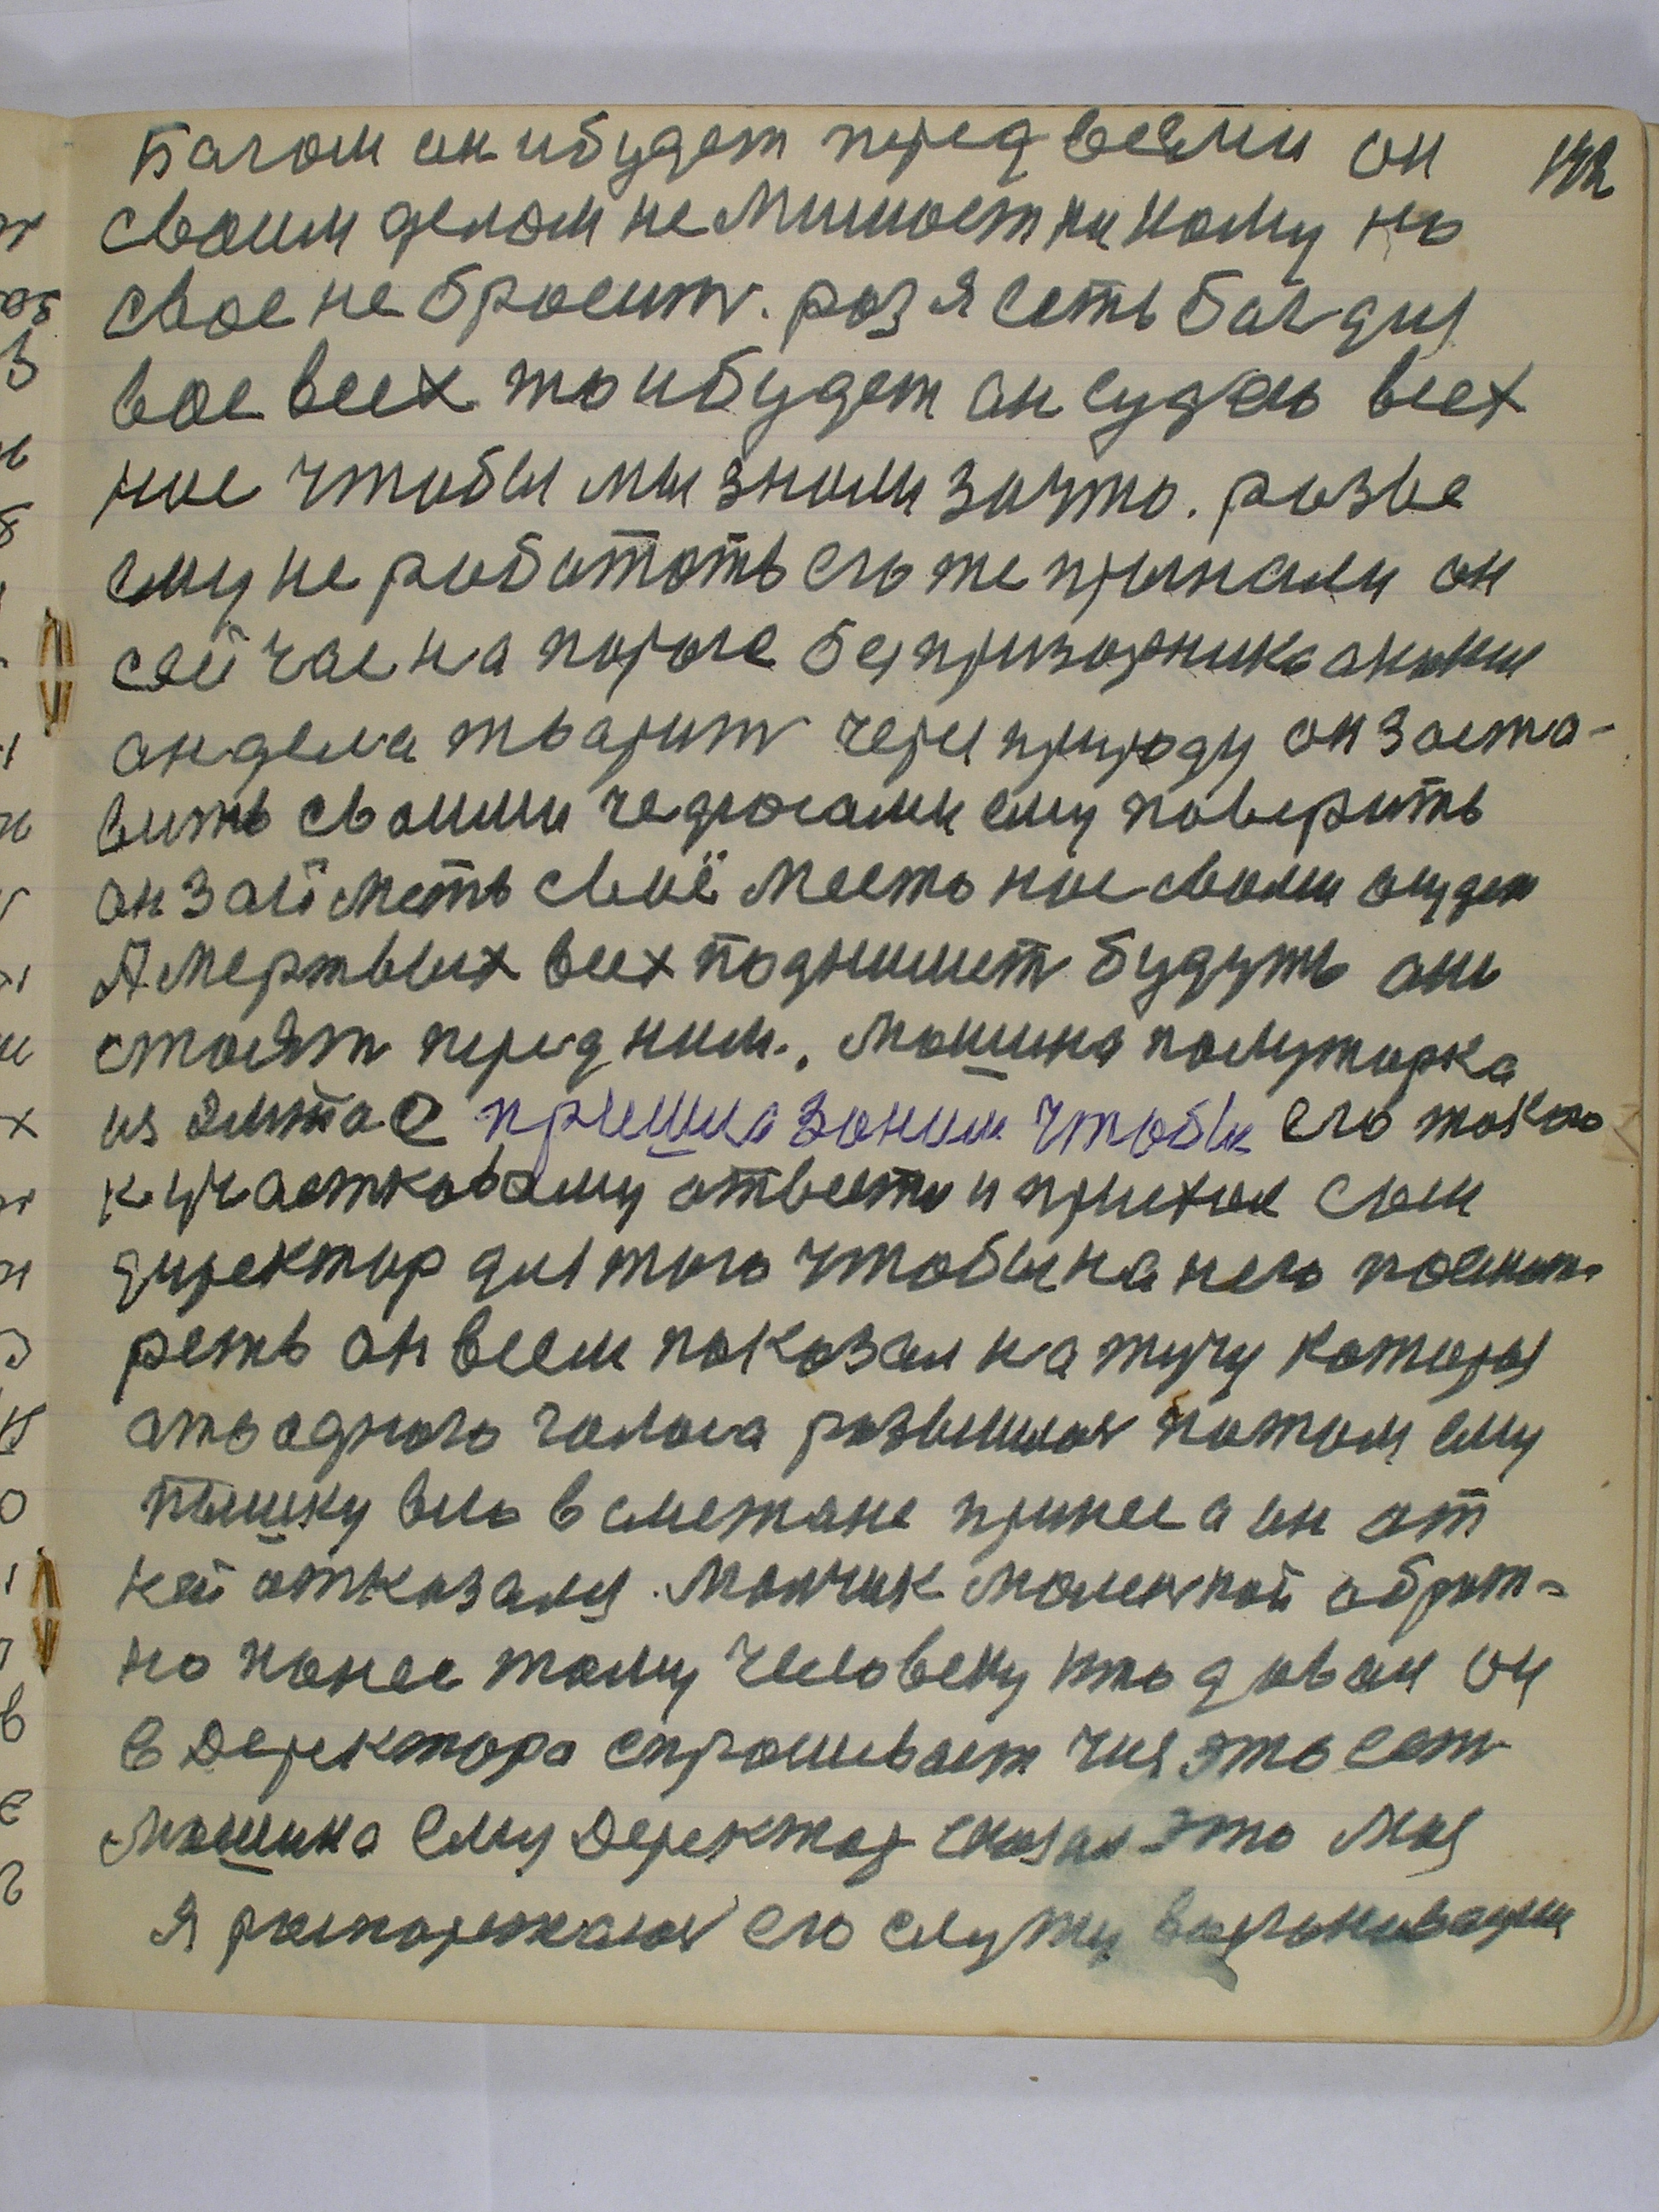 Багом он и будет перед всеми он 142
своим делом не мишает ни кому но
свое не бросит. раз я есть Баг для
вое всех то и будет он судью всех
нас чтобы мы знали за что. разве
ему не работоть его же прынали он
сейчас на пороге безпризорника
он дела творит через природу он заста-
вить своими чедрогами ему поверить
он займеть своё место нас своим
А мертвых всех поднимет будуть они
стоять перед ним. Машина полуторка
из приешла за ним чтобы его такого
к участковаму отвести и приехал сам
директор для того чтобы на него посмот-
реть он всем показал на тучу которая
ать одного голоса потом ему
пышку всю в сметане принес а он от
ней отказался. Малчик маленкой обрат-
но понес тому человеку што давал он
в Деректора спрашивает чия это есть
машина Ему Деректор сказал это моя
Я роспорежаюсь ею служу